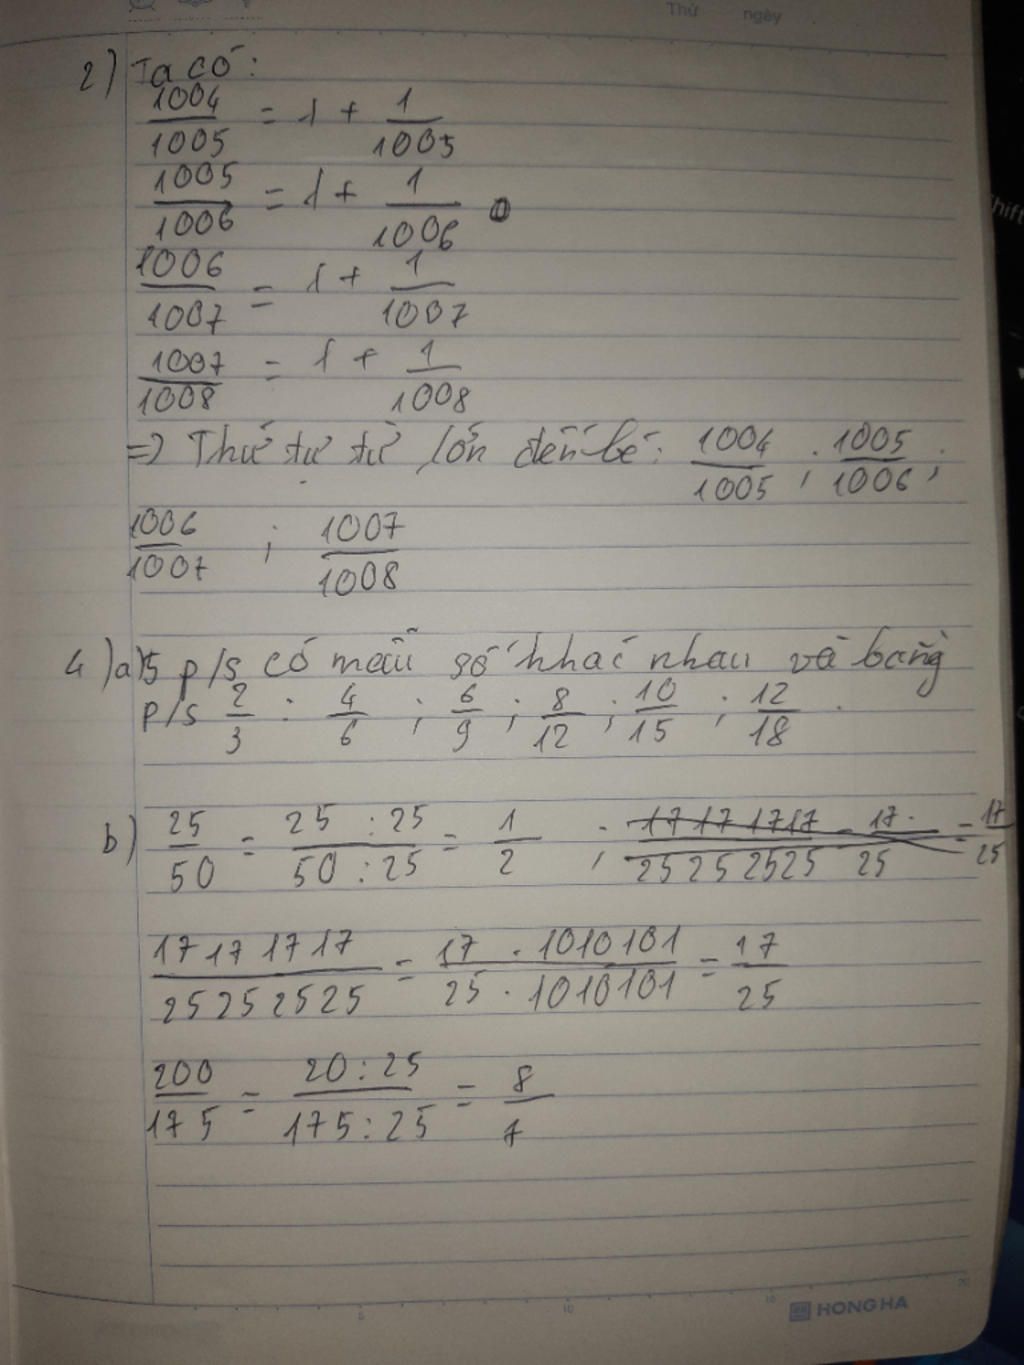 Thứ ngày
2) Ta có:
1004/1005 = 1 + 1/1005
1005/1006 = 1 + 1/1006
1006/1007 = 1 + 1/1007
1007/1008 = 1 + 1/1008
=> Thứ tự từ lớn đến bé: 1004/1005 ; 1005/1006 ;
1006/1007 ; 1007/1008
4) a) 5 p/s có mẫu số khác nhau và bằng
p/s 2/3 : 4/6 ; 6/9 ; 8/12 ; 10/15 ; 12/18 .
b) 25/50 = 25 : 25/50 : 25 = 1/2 ; 17 17 17 17/25 25 25 25 = 17/25 = 17/25
17 17 17 17/25 25 25 25 = 17 . 1010101/25 . 1010101 = 17/25
200/175 = 20 : 25/175 : 25 = 8/7
5 10 15 20
HONG HA
Shift